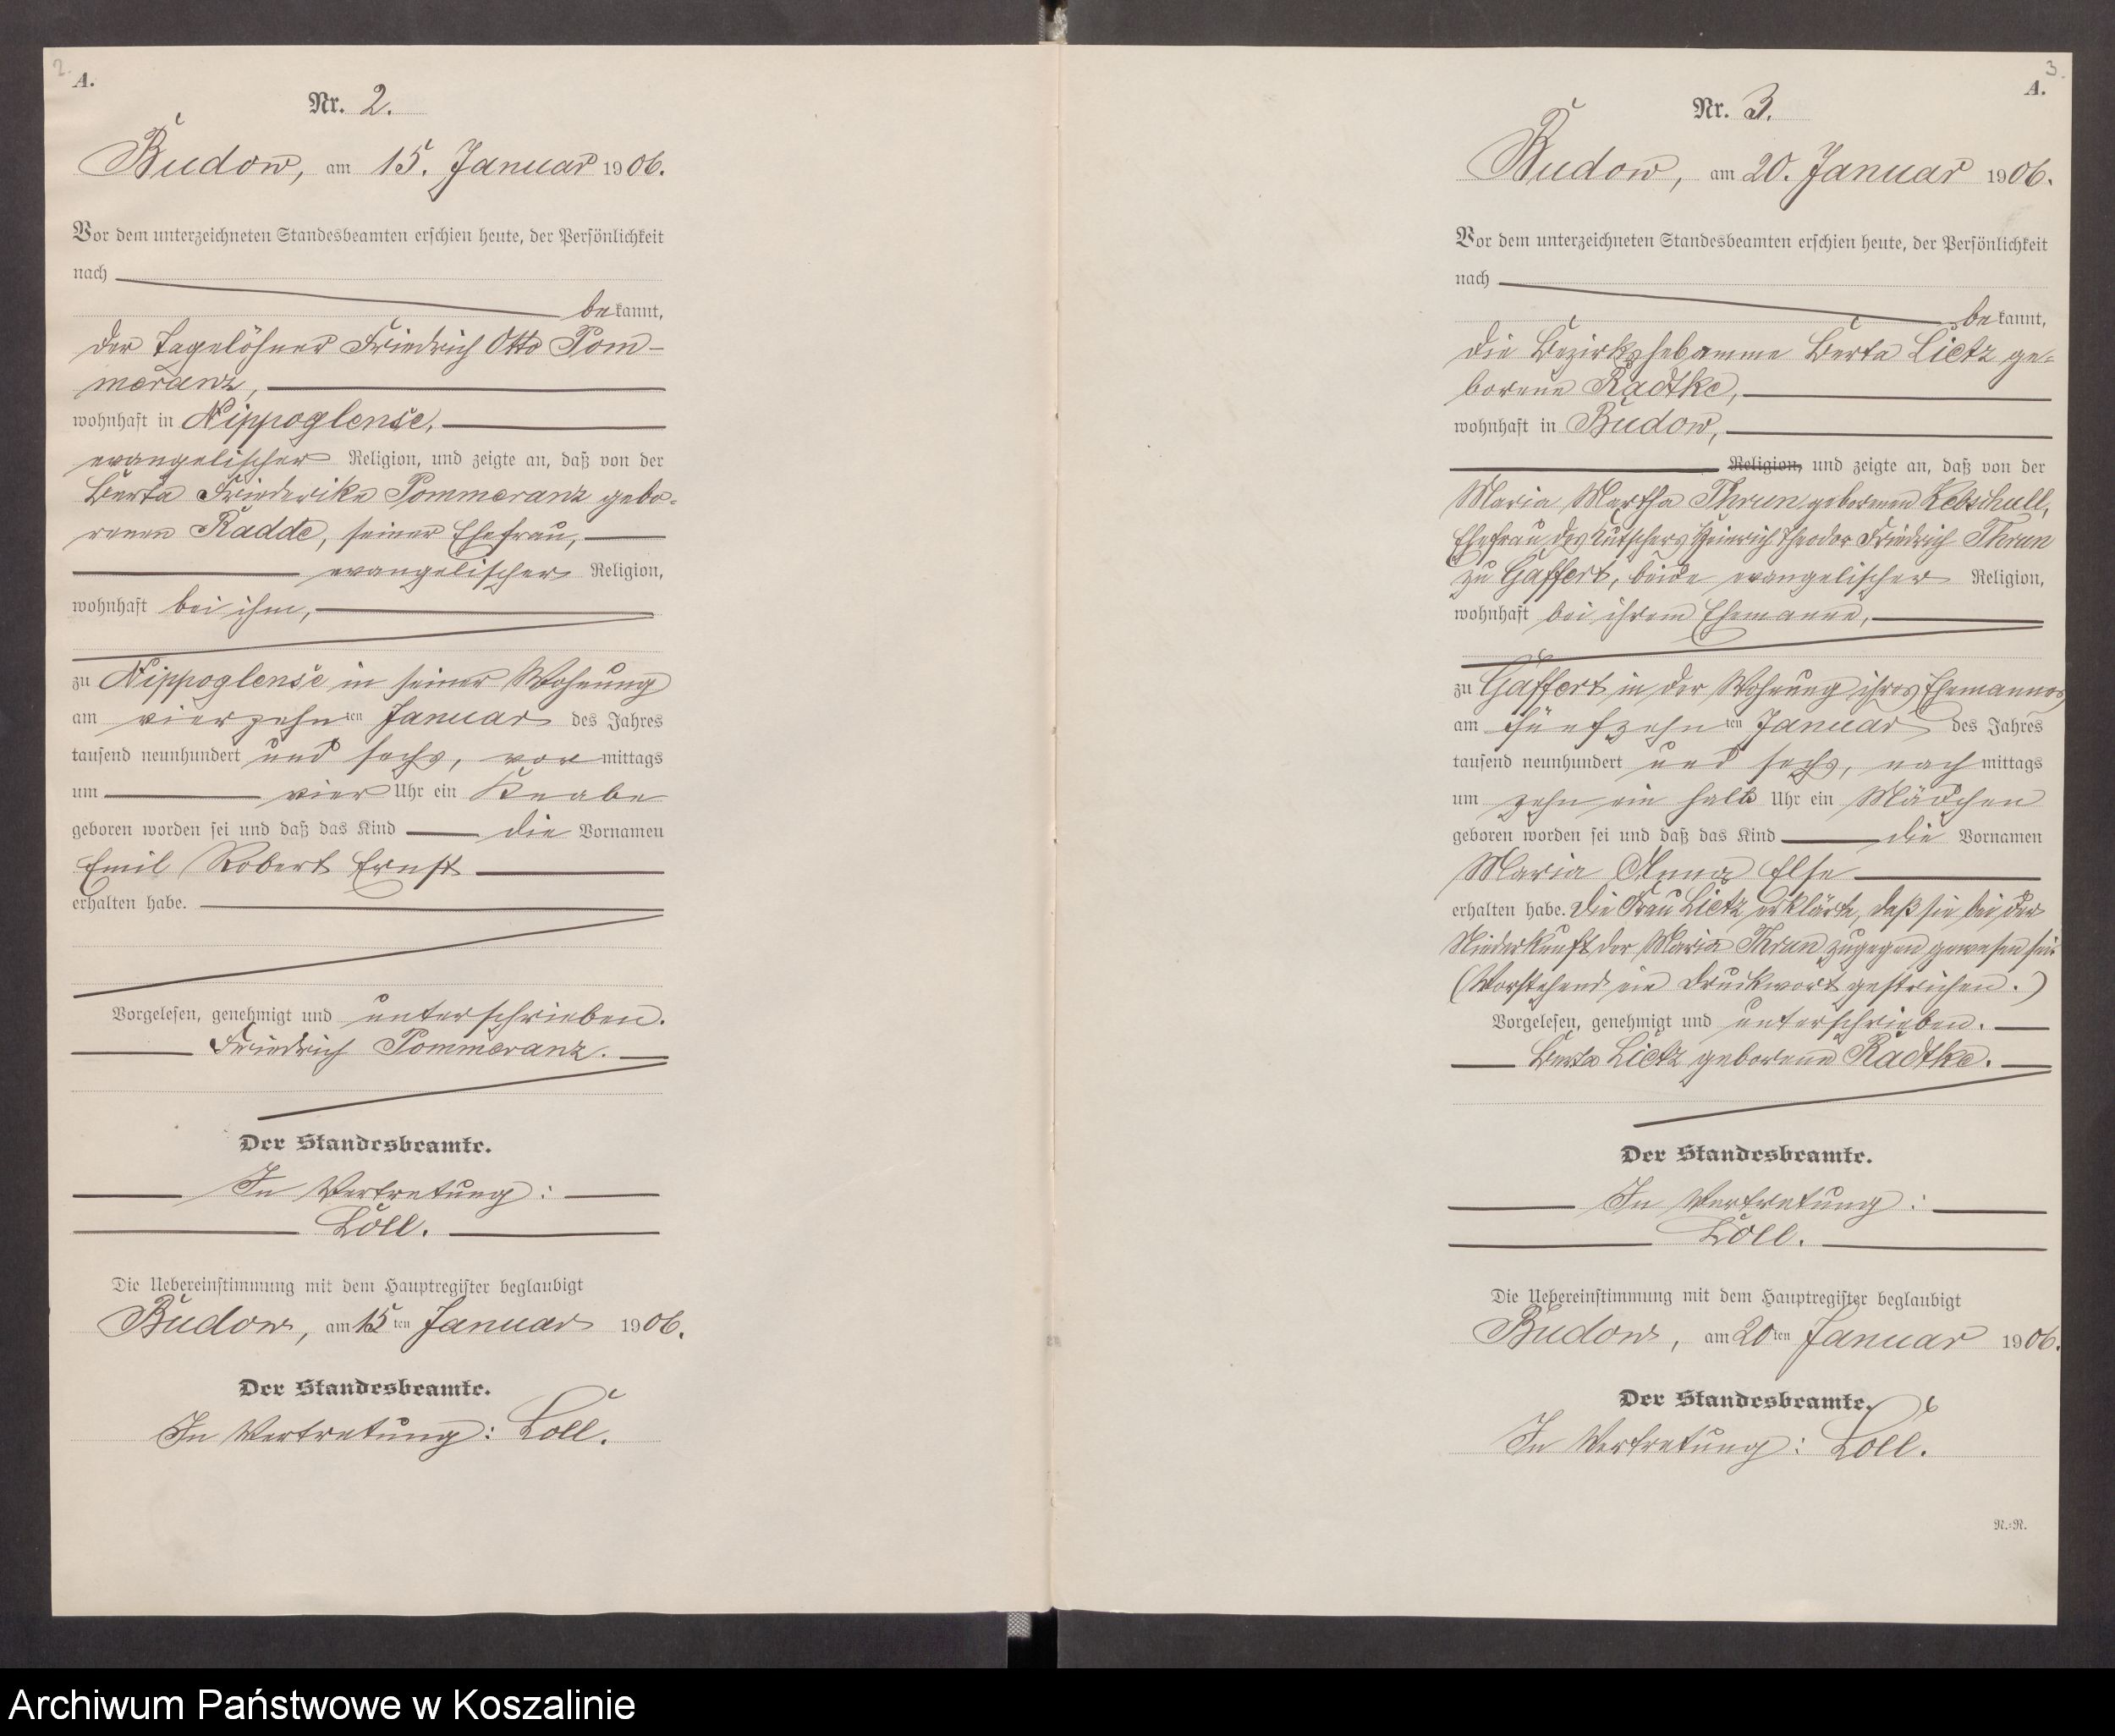 2.
A.
Nr. 2.
Budow, am 15. Januar 1906.
Vor dem unterzeichneten Standesbeamten erschien heute, der Persönlichkeit
nach
bekannt,
der Tagelöhner Friedrich Otto Pom-
meranz,
wohnhaft in Nippoglense,
evangelischer Religion, und zeigte an, daß von der
Berta Friederike Pommeranz gebo-
renen Radde, seiner Ehefrau,
evangelischer Religion,
wohnhaft bei ihm,
zu Nippoglense in seiner Wohnung
am vierzehnten Januar des Jahres
tausend neunhundert und sechs, vormittags
um vier Uhr ein Knabe
geboren worden sei und daß das Kind die Vornamen
Emil Robert Ernst
erhalten habe.
Vorgelesen, genehmigt und unterschrieben.
Friedrich Pommeranz.
Der Standesbeamte.
In Vertretung:
Loll.
Die Uebereinstimmung mit dem Hauptregister beglaubigt
Budow, am 15ten Januar 1906.
Der Standesbeamte.
In Vertretung: Loll.
3.
A.
Nr. 3.
Budow, am 20. Januar 1906.
Vor dem unterzeichneten Standesbeamten erschien heute, der Persönlichkeit
nach
bekannt,
die Bezirkshebamme Berta Lietz ge-
borene Radtke,
wohnhaft in Budow,
Religion, und zeigte an, daß von der
Maria Martha Thrun geborenen Kebschull,
Ehefrau des Kutschers Heinrich Theodor Friedrich Thrun
zu Gaffert, beide evangelischer Religion,
wohnhaft bei ihrem Ehemanne,
zu Gaffert in der Wohnung ihres Ehemannes
am fünfzehnten Januar des Jahres
tausend neunhundert und sechs, nachmittags
um zehn ein halb Uhr ein Mädchen
geboren worden sei und daß das Kind die Vornamen
Maria Anna Else
erhalten habe. Die Frau Lietz erklärte, daß sie bei der
Niederkunft der Maria Thrun zugegen gewesen sei.
(Vorstehend ein Druckwort gestrichen.)
Vorgelesen, genehmigt und unterschrieben.
Berta Lietz geborene Radtke.
Der Standesbeamte.
In Vertretung:
Loll.
Die Uebereinstimmung mit dem Hauptregister beglaubigt
Budow, am 20ten Januar 1906.
Der Standesbeamte.
In Vertretung: Loll.
N.=N.
Archiwum Państwowe w Koszalinie